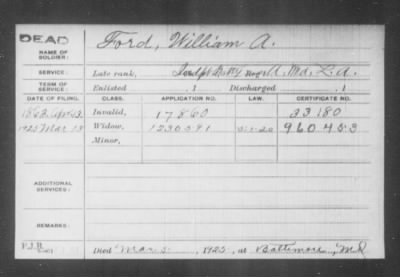 DEAD
NAME OF SOLDIER:
Ford, William A.
SERVICE:
Late rank, Batty A, Md. L.A.
TERM OF SERVICE:
Enlisted , 1 Discharged , 1
DATE OF FILING. CLASS. APPLICATION NO. LAW. CERTIFICATE NO.
Invalid, 17860 23180
1925 Mar 13 Widow, 1230591 5-1-20 960453
Minor,
ADDITIONAL SERVICES:
REMARKS:
P.J.R.
Died Mar 5, 1925, at Baltimore, Md